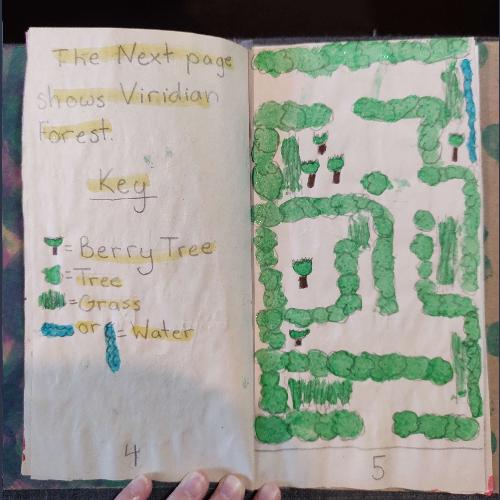 The Next page
shows Viridian
Forest.
Key
= Berry Tree
= Tree
= Grass
or = Water
4
5